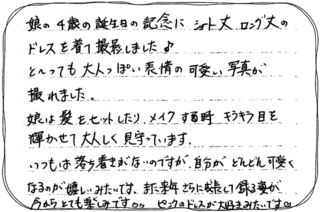 娘の4歳の誕生日の記念に ショート丈 ロング丈の
ドレスを着て撮影しました♪
と〜っても大人っぽい表情の可愛い写真が
撮れました。
娘は髪をセットしたり、メイクする時 キラキラ目を
輝かせて大人しく見守っています。
いつもは落ち着きがないのですが、自分がどんどん可愛く
なるのが嬉しいみたいです。また来年さらに成長して撮る姿が
今からとても楽しみです♡♡ ピンクのドレスが大好きみたいです♡